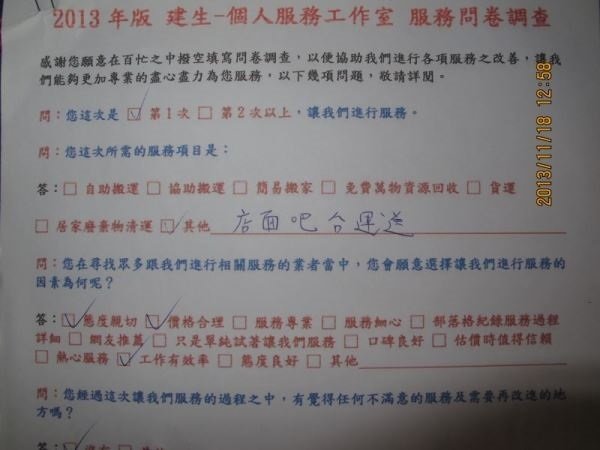 2013 年版 建生-個人服務工作室 服務問卷調查
感謝您願意在百忙之中撥空填寫問卷調查，以便協助我們進行各項服務之改善，讓我
們能夠更加專業的盡心盡力為您服務，以下幾項問題，敬請詳閱。
問：您這次是 ☑ 第1次 □ 第2次以上，讓我們進行服務。
問：您這次所需的服務項目是：
答：□ 自助搬運 □ 協助搬運 □ 簡易搬家 □ 免費萬物資源回收 □ 貨運
□ 居家廢棄物清運 ☑ 其他 店面吧台運送
問：您在尋找眾多跟我們進行相關服務的業者當中，您會願意選擇讓我們進行服務的
因素為何呢？
答：☑ 態度親切 ☑ 價格合理 □ 服務專業 □ 服務細心 □ 部落格紀錄服務過程
詳細 □ 網友推薦 □ 只是單純試著讓我們服務 □ 口碑良好 □ 估價時值得信賴
□ 熱心服務 ☑ 工作有效率 □ 態度良好 □ 其他
問：您經過這次讓我們服務的過程之中，有覺得任何不滿意的服務及需要再改進的地
方嗎？
答：☑
2013/11/18 12:58